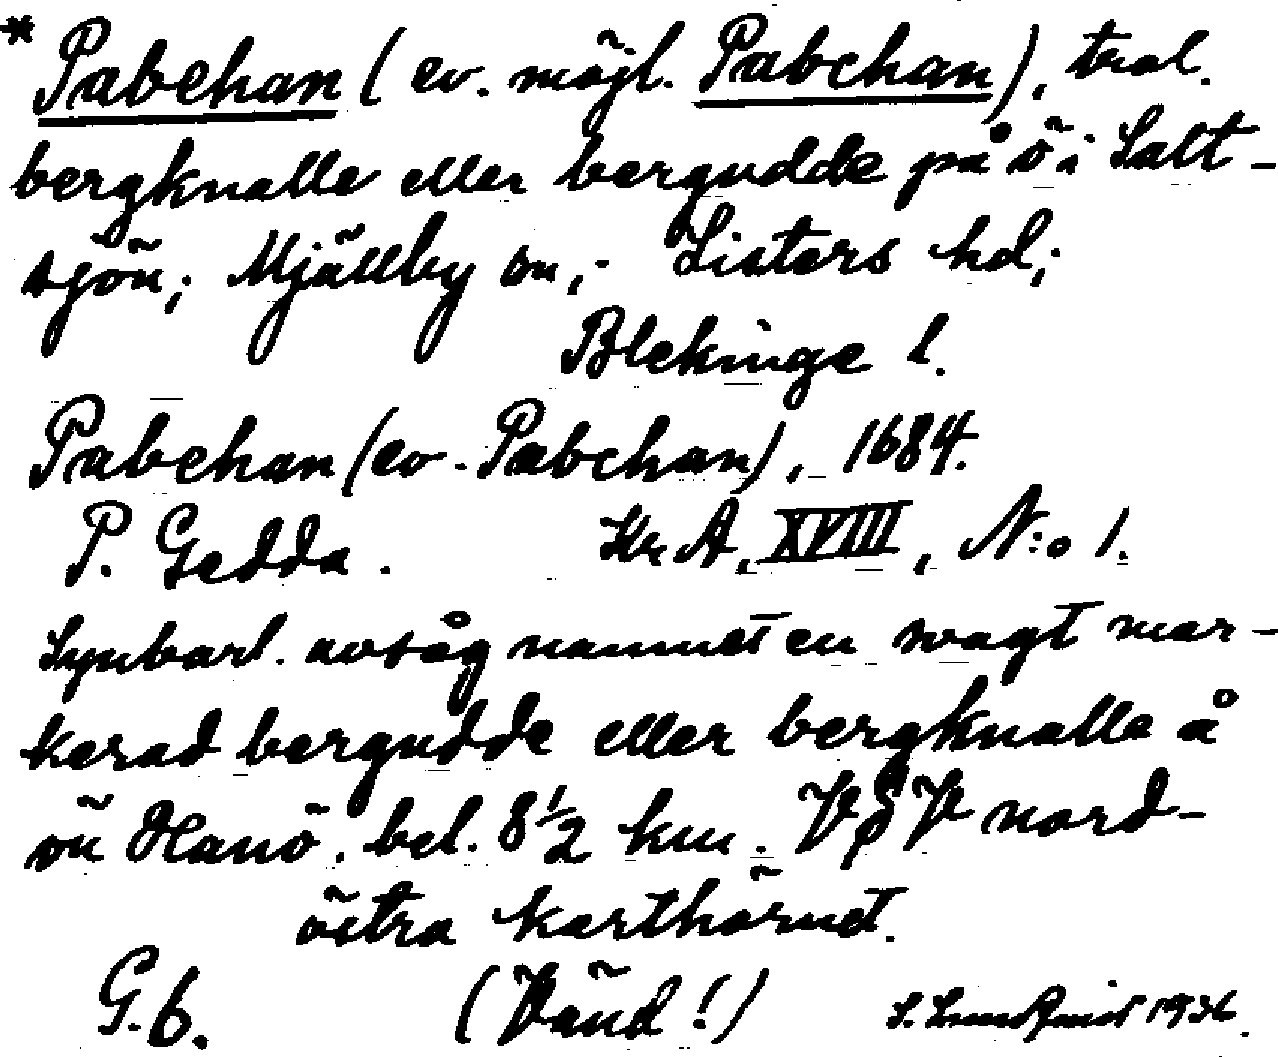 * Pabehan (ev. möjl. Pabchan), trol.
bergknalle eller bergudde på ö i Salt-
sjön; Mjällby sn, Listers hd;
Blekinge l.
Pabehan (ev. Pabchan), 1684.
P. Gedda. Kr A, XVIII, N:o 1.
Synbarl. avsåg namnet en svagt mar-
kerad bergudde eller bergknalle å
ön Hanö, bel. 8 1/2 km. VSV nord-
östra karthörnet.
G.6. (Vänd!) S. Lundquist 1936.